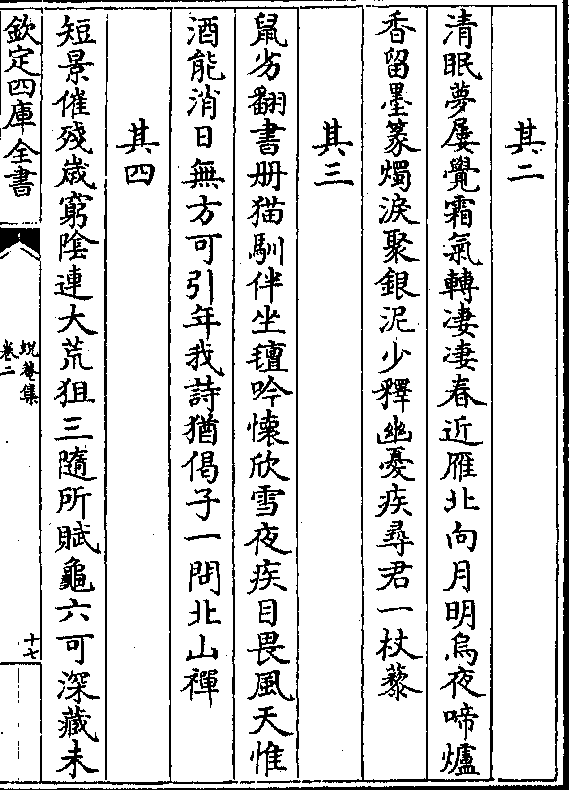 其二
清眠夢屢覺霜氣轉凄凄春近雁北向月明烏夜啼爐
香留墨篆燭淚聚銀泥少釋幽憂疾尋君一杖藜
其三
鼠劣翻書册猫馴伴坐氊吟懐欣雪夜疾目畏風天惟
酒能消日無方可引年我詩猶偈子一問北山禪
其四
短景催殘嵗窮隂連大荒狙三隨所賦龜六可深藏未
欽定四庫全書
蜕菴集
卷二
十七